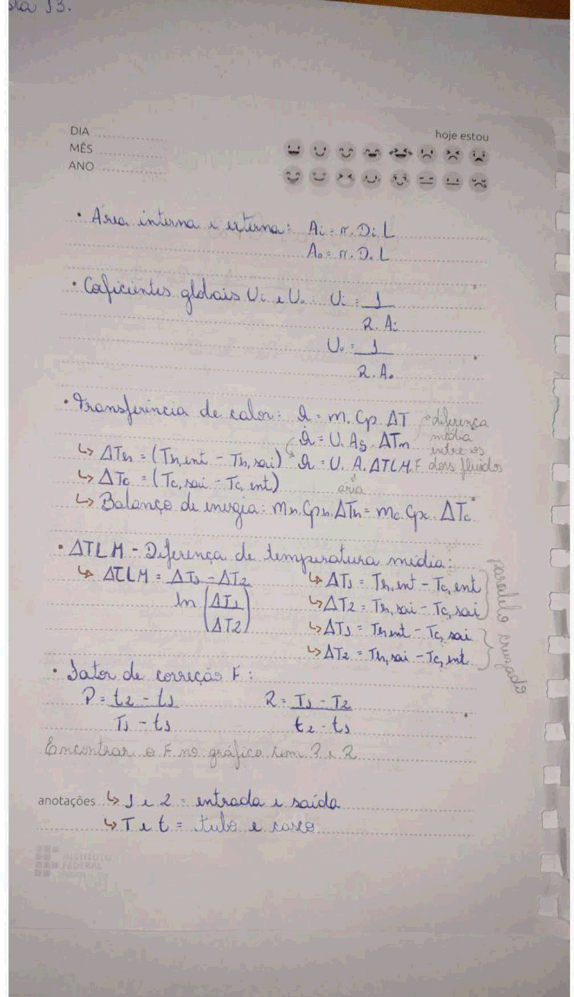 DIA
MÊS
ANO
hoje estou
• Área interna e externa: Ai = π. Di. L
Ao = π. Do. L
• Coeficientes globais Ui e Uo: Ui = 1
R. Ai
Uo = 1
R. Ao
• Transferência de calor: Q = m. Cp. ΔT
Q̇ = U. As. ΔTm
diferença
média
entre os
dois fluidos
↳ ΔTh = (Th, ent - Th, sai)
Q = U. A. ΔTLM. F
área
↳ ΔTc = (Tc, sai - Tc, ent)
↳ Balanço de energia: mh. Cph. ΔTh = mc. Cpc. ΔTc
• ΔTLM - Diferença de temperatura média:
↳ ΔTLM = ΔT1 - ΔT2
ln (ΔT1
ΔT2)
↳ ΔT1 = Th, ent - Tc, ent
↳ ΔT2 = Th, sai - Tc, sai
↳ ΔT1 = Th, ent - Tc, sai
↳ ΔT2 = Th, sai - Tc, ent
paralelo cruzado
• Fator de correção F:
P = t2 - t1
T1 - t1
R = T1 - T2
t2 - t1
Encontrar o F no gráfico com P e R
anotações ↳ 1 e 2 = entrada e saída
↳ T e t = tubo e casco
INSTITUTO
FEDERAL